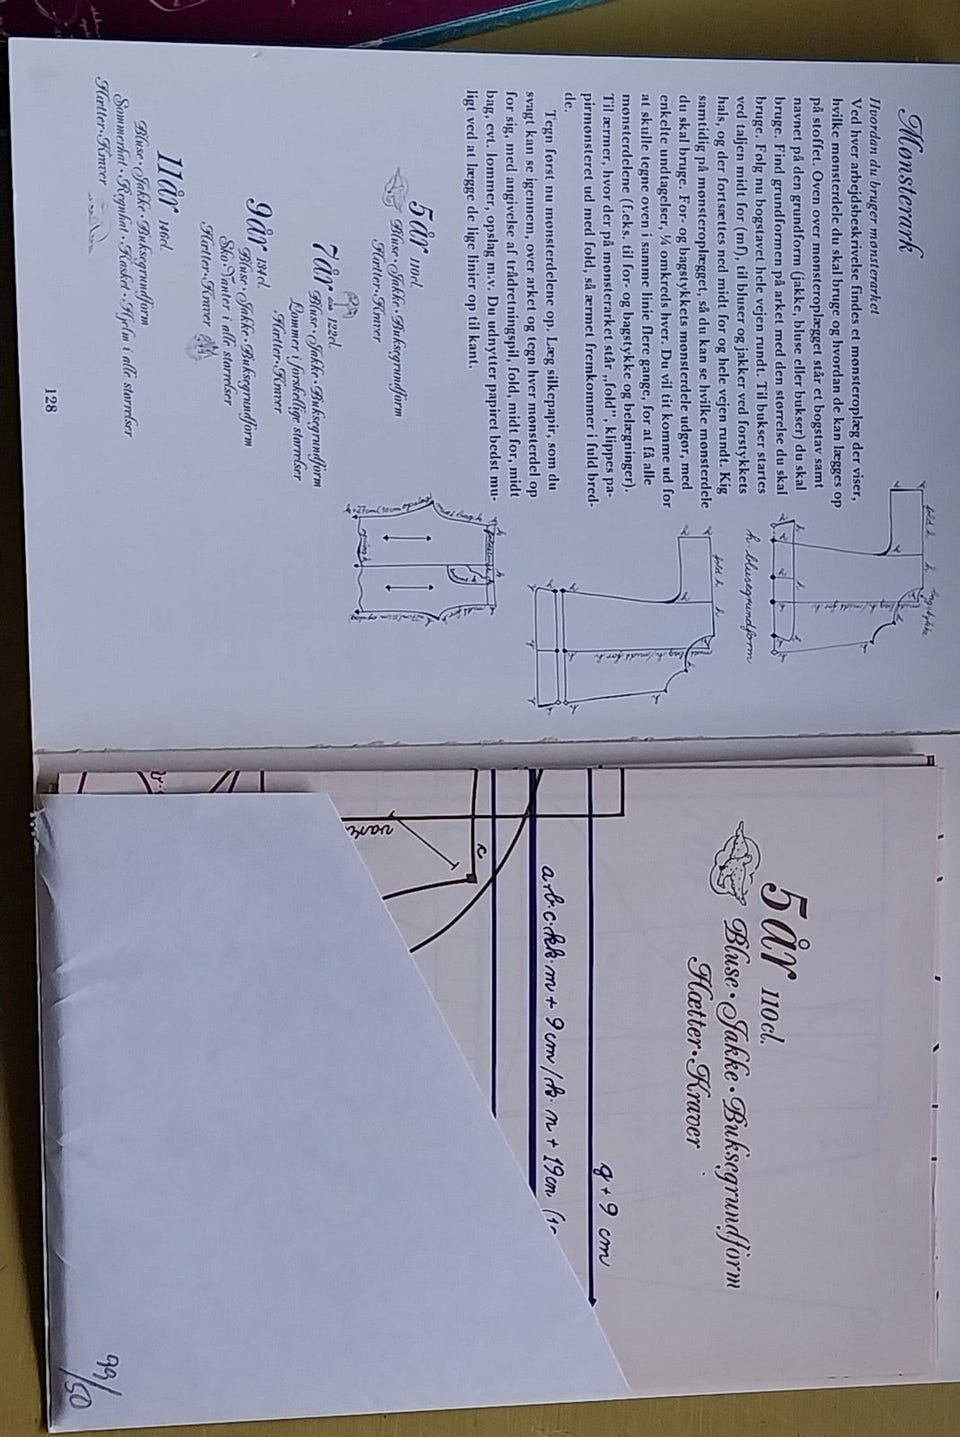 Mønsterark
Hvordan du bruger mønsterarket
Ved hver arbejdsbeskrivelse findes et mønsteroplæg der viser,
hvilke mønsterdele du skal bruge og hvordan de kan lægges op
på stoffet. Oven over mønsteroplægget står et bogstav samt
navnet på den grundform (jakke, bluse eller bukser) du skal
bruge. Find grundformen på arket med den størrelse du skal
bruge. Følg nu bogstavet hele vejen rundt. Til bukser startes
ved taljen midt for (mf), til bluser og jakker ved forstykkets
hals, og der fortsættes ned midt for og hele vejen rundt. Kig
samtidig på mønsteroplægget, så du kan se hvilke mønsterdele
du skal bruge. For- og bagstykkets mønsterdele udgør, med
enkelte undtagelser, ¼ omkreds hver. Du vil tit komme ud for
at skulle tegne oven i samme linie flere gange, for at få alle
mønsterdelene (f.eks. til for- og bagstykke og belægninger).
Til ærmer, hvor der på mønsterarket står „fold", klippes pa-
pirmønsteret ud med fold, så ærmet fremkommer i fuld bred-
de.
Tegn først nu mønsterdelene op. Læg silkepapir, som du
svagt kan se igennem, over arket og tegn hver mønsterdel op
for sig, med angivelse af trådretningspil, fold, midt for, midt
bag, evt. lommer, opslag m.v. Du udnytter papiret bedst mu-
ligt ved at lægge de lige linier op til kant.
fold h.
h
h
h blusegrundform
fold h.
midt bag h./midt for h.
5år 110cl.
Bluse · Jakke · Buksegrundform
Hætter · Kraver
7år 122cl.
Bluse · Jakke · Buksegrundform
Lommer i forskellige størrelser
Hætter · Kraver
9år 134cl.
Bluse · Jakke · Buksegrundform
Sko · Vanter i alle størrelser
Hætter · Kraver
11år 146cl.
Bluse · Jakke · Buksegrundform
Sommerhat · Regnhat · Kasket · Hjelm i alle størrelser
Hætter · Kraver
128
5år 110cl.
Bluse · Jakke · Buksegrundform
Hætter · Kraver
g + 9 cm
a·b·c·kk·m + 9 cm / k· n + 19 cm
c
99/50